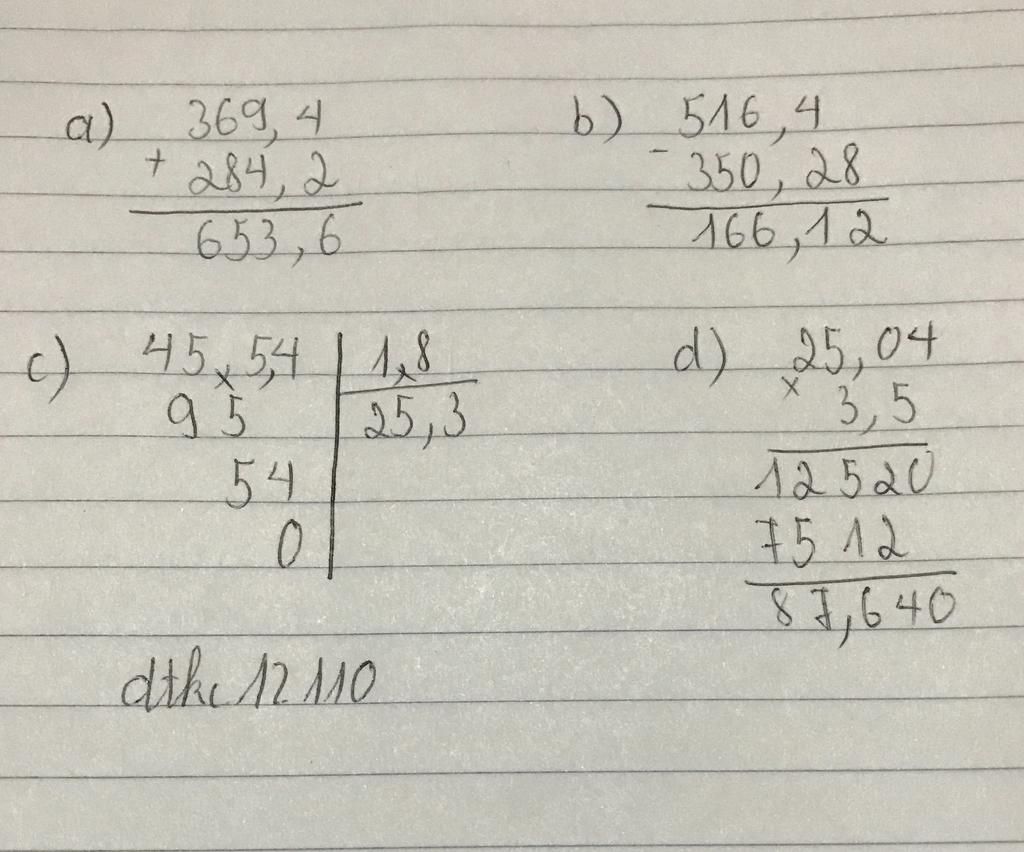 a) 369,4
+ 284,2
653,6
b) 516,4
- 350,28
166,12
c) 45,5,4 1,8
95 25,3
54
0
d) 25,04
x 3,5
12520
7512
87,640
dtkc12110